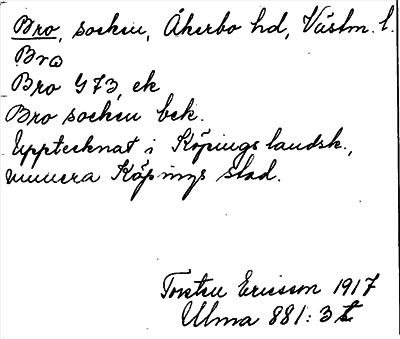 Bro, socken, Åkerbo hd, Västm. l.
Bro
Bro G73, ek
Bro socken bek.
Upptecknat i Köpings landsk.,
numera Köpings stad.
Torsten Ericsson 1917
Ulma 881:3 t